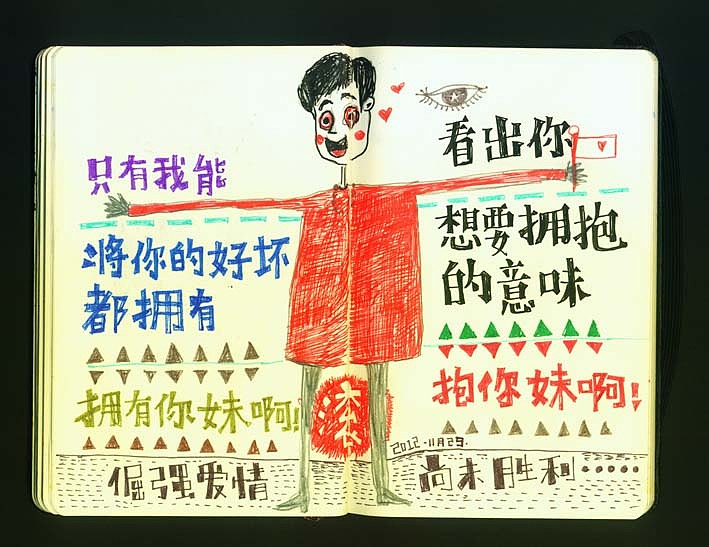 只有我能
将你的好坏
都拥有
拥有你妹啊!
倔强爱情
看出你
想要拥抱
的意味
抱你妹啊!
2012.11月29.
尚未胜利······
滚